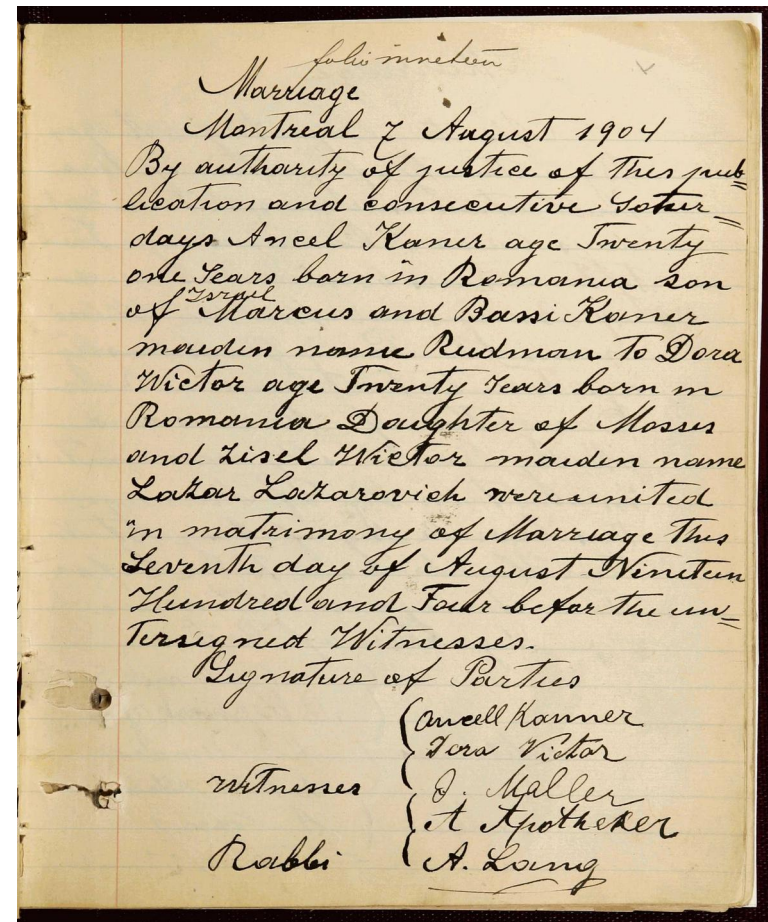 folio nineteen
Marriage
Montreal 7 August 1904
By authority of justice of this pub=
lication and consecutive Satur=
days Ancel Kaner age Twenty
one Years born in Romania son
Israel
of Marcus and Bassi Kaner
maiden name Rudman to Dora
Wictor age Twenty Years born in
Romania Daughter of Mosses
and Zisel Wictor maiden name
Lazar Lazarovich were united
in matrimony of Marriage this
Seventh day of August Nineteen
Hundred and Four befor the un=
tersigned Witnesses.
Signature of Parties
Ancell Kanner
Dora Victor
Witnesses J. Maller
A Apotheker
Rabbi A. Lang